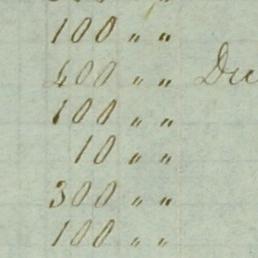 100 " "
400 " "
100 " "
10 " "
300 " "
100 " "